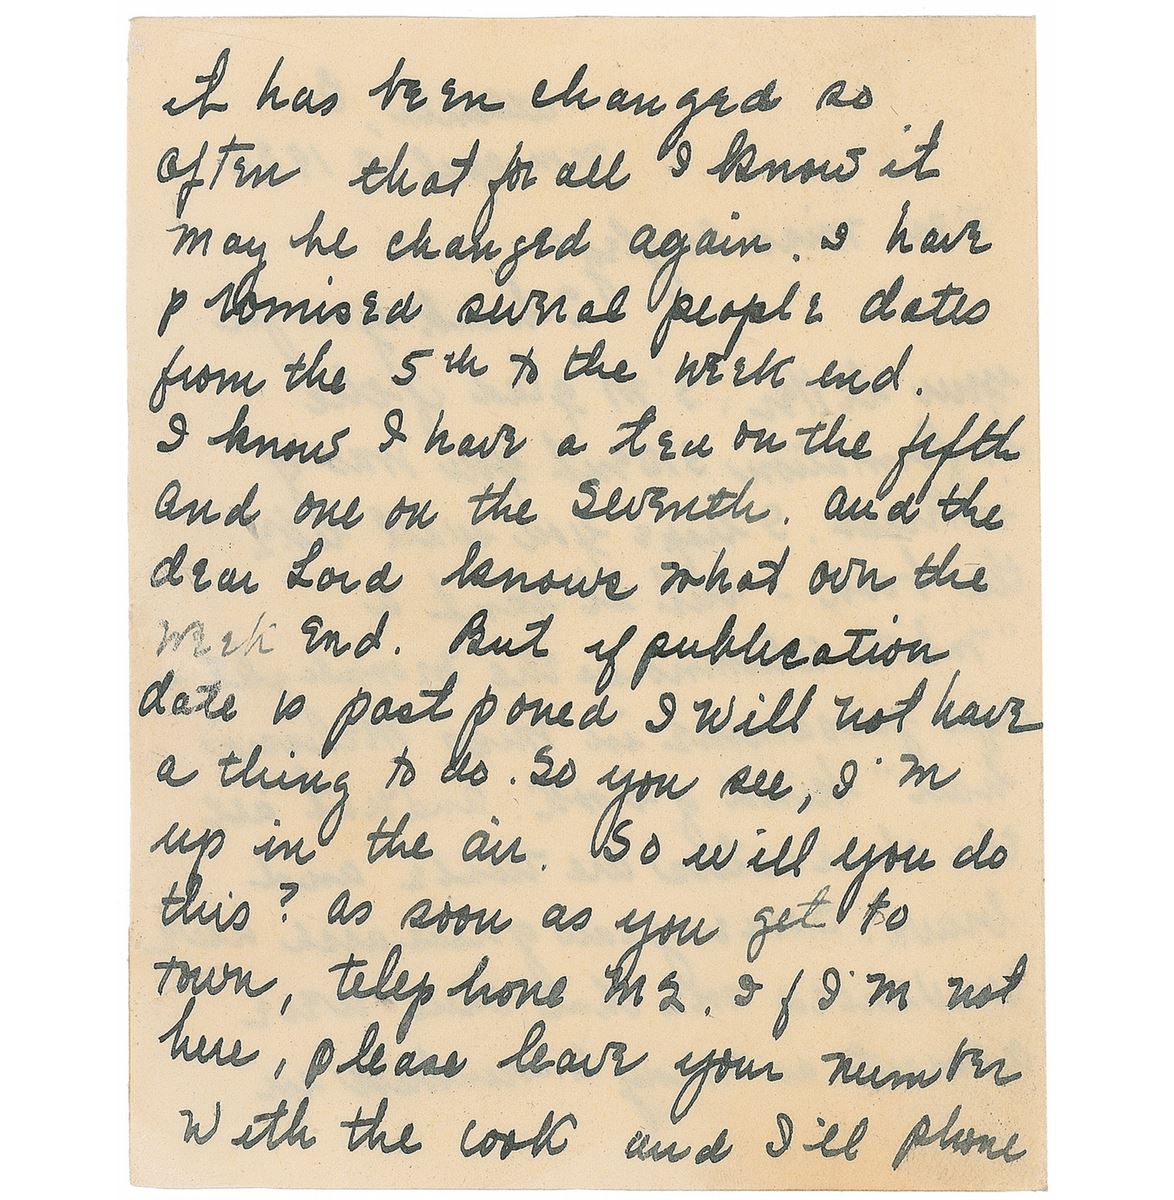 it has been changed so
often that for all I know it
may be changed again. I have
promised several people dates
from the 5th to the week end.
I know I have a tea on the fifth
and one on the Seventh. and the
dear Lord knows what over the
week End. But if publication
date is postponed I will not have
a thing to do. So you see, I'm
up in the air. So will you do
this? as soon as you get to
town, telephone me. If I'm not
here, please leave your number
with the cook and I'll phone